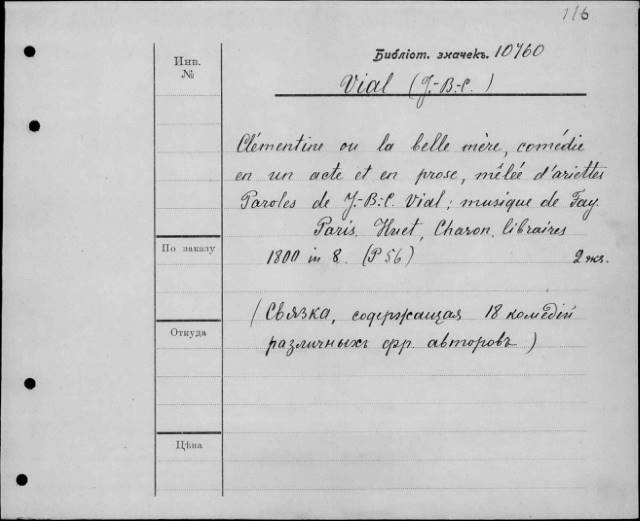 116
Инв.
№
Библіот. значекъ. 10760
Vial (J.-B.-C.)
Clémentine ou la belle mère, comédie
en un acte et en prose, mêlée d'ariettes
Paroles de J.-B.-C. Vial; musique de Fay.
Paris. Huet, Charon, libraires
По заказу
1800 in 8. (P 56)
2 экз.
(Связка, содержащая 18 комедій
Откуда
различныхъ фр. авторовъ)
Цѣна